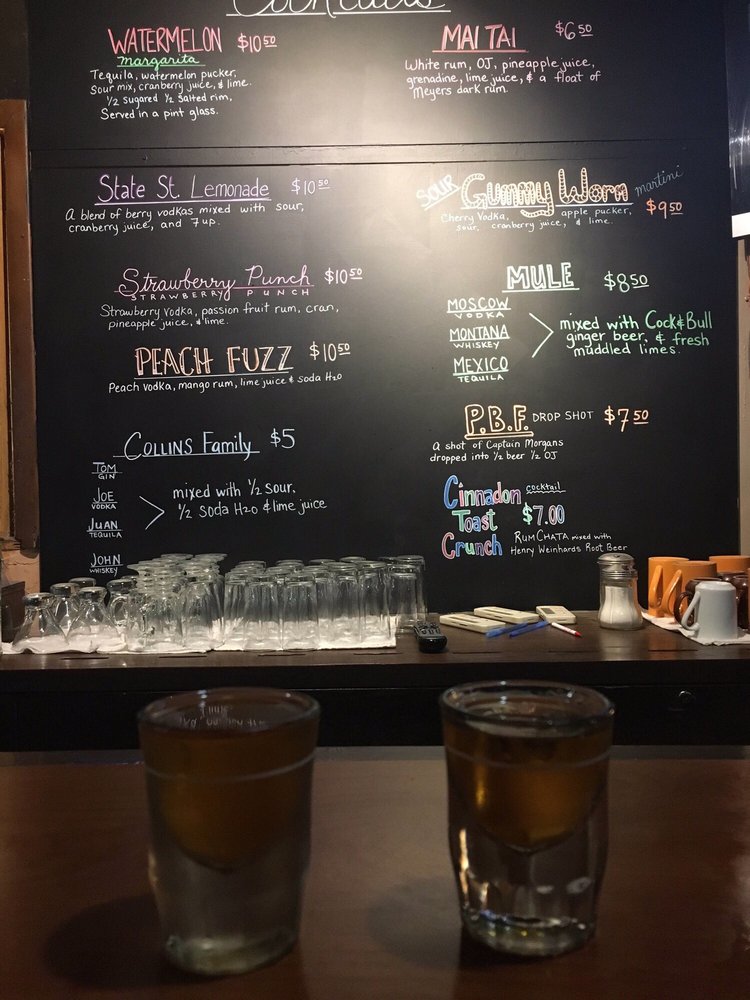 Cocktails
WATERMELON $10.50
margarita
Tequila, watermelon pucker,
sour mix, cranberry juice, & lime.
1/2 sugared 1/2 salted rim,
Served in a pint glass.
MAI TAI $6.50
White rum, OJ, pineapple juice,
grenadine, lime juice, & a float of
Meyers dark rum.
State St. Lemonade $10.50
A blend of berry vodkas mixed with sour,
cranberry juice, and 7up.
SOUR Gummy Worm martini $9.50
Cherry Vodka, apple pucker,
sour, cranberry juice, & lime.
Strawberry Punch $10.50
STRAWBERRY PUNCH
Strawberry vodka, passion fruit rum, cran,
pineapple juice, & lime.
MULE $8.50
MOSCOW
VODKA
MONTANA
WHISKEY
MEXICO
TEQUILA
mixed with Cock&Bull
ginger beer, & fresh
muddled limes.
PEACH FUZZ $10.50
Peach vodka, mango rum, lime juice & soda H2O
P.B.F. DROP SHOT $7.50
A shot of Captain Morgans
dropped into 1/2 beer 1/2 OJ
COLLINS Family $5
TOM
GIN
JOE
VODKA
JUAN
TEQUILA
JOHN
WHISKEY
mixed with 1/2 sour.
1/2 soda H2O & lime juice
Cinnadon cocktail
Toast $7.00
Crunch RUMCHATA mixed with
Henry Weinhards Root Beer